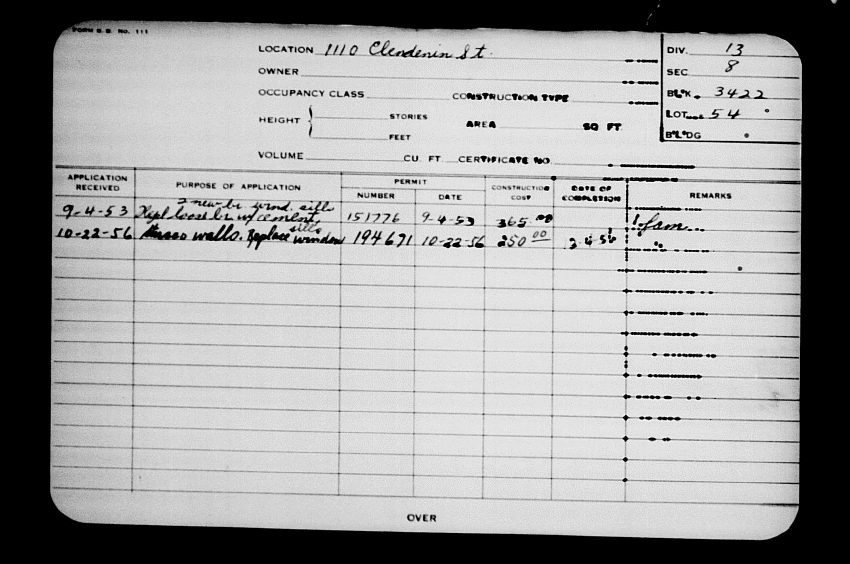 FORM B.D. No. 111
LOCATION 1110 Clendenin St.
DIV. 13
OWNER
SEC 8
OCCUPANCY CLASS CONSTRUCTION TYPE
BL'K. 3422
HEIGHT STORIES
FEET
AREA SQ FT
LOT 54
BL'DG
VOLUME CU. FT. CERTIFICATE NO
APPLICATION RECEIVED PURPOSE OF APPLICATION PERMIT CONSTRUCTION COST DATE OF COMPLETION REMARKS
NUMBER DATE
3 new br. wind. sills
9-4-53 Repl loose br w/cement, 151776 9-4-53 365.00 1 fam
sills
10-22-56 walls. Replace window 194671 10-22-56 250 00
OVER